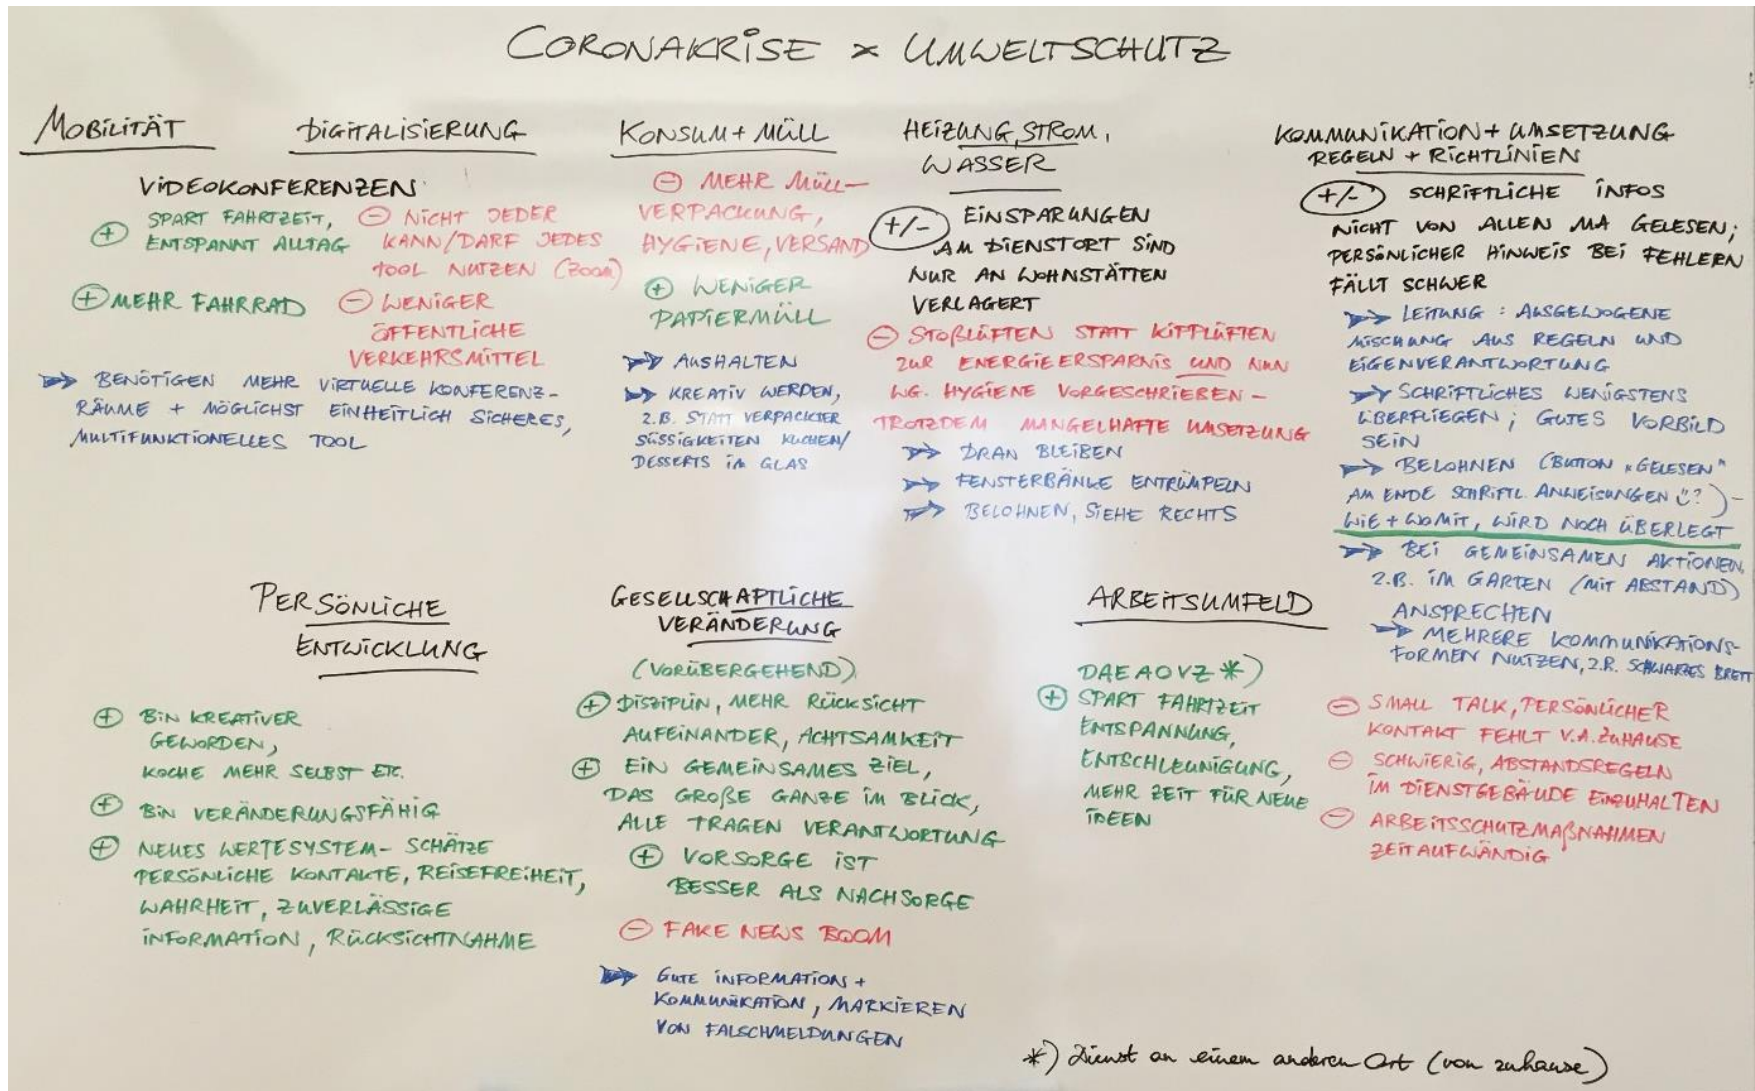 CORONAKRISE × UMWELTSCHUTZ
MOBILITÄT
DIGITALISIERUNG
VIDEOKONFERENZEN
⊕ SPART FAHRTZEIT,
ENTSPANNT ALLTAG
⊖ NICHT JEDER
KANN/DARF JEDES
TOOL NUTZEN (ZOOM)
⊕ MEHR FAHRRAD
⊖ WENIGER
ÖFFENTLICHE
VERKEHRSMITTEL
BENÖTIGEN MEHR VIRTUELLE KONFERENZ-
RÄUME + MÖGLICHST EINHEITLICH SICHERES,
MULTIFUNKTIONELLES TOOL
KONSUM + MÜLL
⊖ MEHR MÜLL –
VERPACKUNG,
HYGIENE, VERSAND
⊕ WENIGER
PAPIERMÜLL
AUSHALTEN
KREATIV WERDEN,
Z.B. STATT VERPACKTER
SÜSSIGKEITEN KUCHEN/
DESSERTS IM GLAS
HEIZUNG, STROM,
WASSER
+/- EINSPARUNGEN
AM DIENSTORT SIND
NUR AN WOHNSTÄTTEN
VERLAGERT
⊖ STOßLÜFTEN STATT KIPPLÜFTEN
ZUR ENERGIEERSPARNIS UND NUN
WG. HYGIENE VORGESCHRIEBEN –
TROTZDEM MANGELHAFTE UMSETZUNG
DRAN BLEIBEN
FENSTERBÄNKE ENTRÜMPELN
BELOHNEN, SIEHE RECHTS
KOMMUNIKATION + UMSETZUNG
REGELN + RICHTLINIEN
+/- SCHRIFTLICHE INFOS
NICHT VON ALLEN MA GELESEN;
PERSÖNLICHER HINWEIS BEI FEHLERN
FÄLLT SCHWER
LEITUNG: AUSGEWOGENE
MISCHUNG AUS REGELN UND
EIGENVERANTWORTUNG
SCHRIFTLICHES WENIGSTENS
ÜBERFLIEGEN; GUTES VORBILD
SEIN
BELOHNEN (BUTTON „GELESEN"
AM ENDE SCHRIFTL. ANWEISUNGEN ?) –
WIE + WOMIT, WIRD NOCH ÜBERLEGT
BEI GEMEINSAMEN AKTIONEN,
Z.B. IM GARTEN (MIT ABSTAND)
ANSPRECHEN
MEHRERE KOMMUNIKATIONS-
FORMEN NUTZEN, Z.B. SCHWARZES BRETT
PERSÖNLICHE
ENTWICKLUNG
⊕ BIN KREATIVER
GEWORDEN,
KOCHE MEHR SELBST ETC.
⊕ BIN VERÄNDERUNGSFÄHIG
⊕ NEUES WERTESYSTEM – SCHÄTZE
PERSÖNLICHE KONTAKTE, REISEFREIHEIT,
WAHRHEIT, ZUVERLÄSSIGE
INFORMATION, RÜCKSICHTNAHME
GESELLSCHAFTLICHE
VERÄNDERUNG
(VORÜBERGEHEND)
⊕ DISZIPLIN, MEHR RÜCKSICHT
AUFEINANDER, ACHTSAMKEIT
⊕ EIN GEMEINSAMES ZIEL,
DAS GROßE GANZE IM BLICK,
ALLE TRAGEN VERANTWORTUNG
⊕ VORSORGE IST
BESSER ALS NACHSORGE
⊖ FAKE NEWS BOOM
GUTE INFORMATION +
KOMMUNIKATION, MARKIEREN
VON FALSCHMELDUNGEN
ARBEITSUMFELD
DAEAOVZ *)
⊕ SPART FAHRTZEIT
ENTSPANNUNG,
ENTSCHLEUNIGUNG,
MEHR ZEIT FÜR NEUE
IDEEN
⊖ SMALL TALK, PERSÖNLICHER
KONTAKT FEHLT V.A. ZUHAUSE
⊖ SCHWIERIG, ABSTANDSREGELN
IM DIENSTGEBÄUDE EINZUHALTEN
⊖ ARBEITSSCHUTZMAßNAHMEN
ZEITAUFWÄNDIG
*) Dienst an einem anderen Ort (von zuhause)